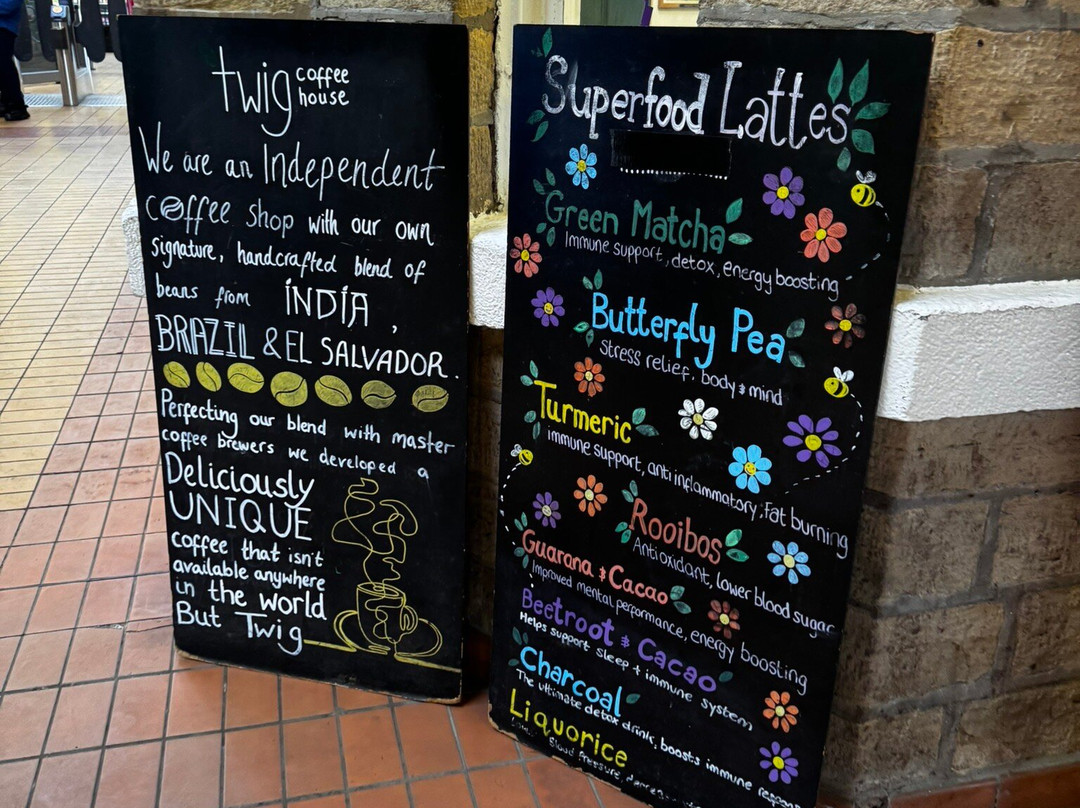 twig coffee
house
We are an Independent
coffee shop with our own
signature, handcrafted blend of
beans from INDIA ,
BRAZIL & EL SALVADOR.
Perfecting our blend with master
coffee brewers we developed a
Deliciously
UNIQUE
coffee that isn't
available anywhere
in the world
But Twig
Superfood Lattes
Green Matcha
Immune support, detox, energy boosting
Butterfly Pea
Stress relief. body & mind
Turmeric
immune support, anti inflammatory, fat burning
Rooibos
Antioxidant, lower blood sugar
Guarana & Cacao
Improved mental performance, energy boosting
Beetroot & Cacao
Helps support sleep + immune system
Charcoal
The ultimate detox drink, boosts immune
Liquorice
Blood Pressure,